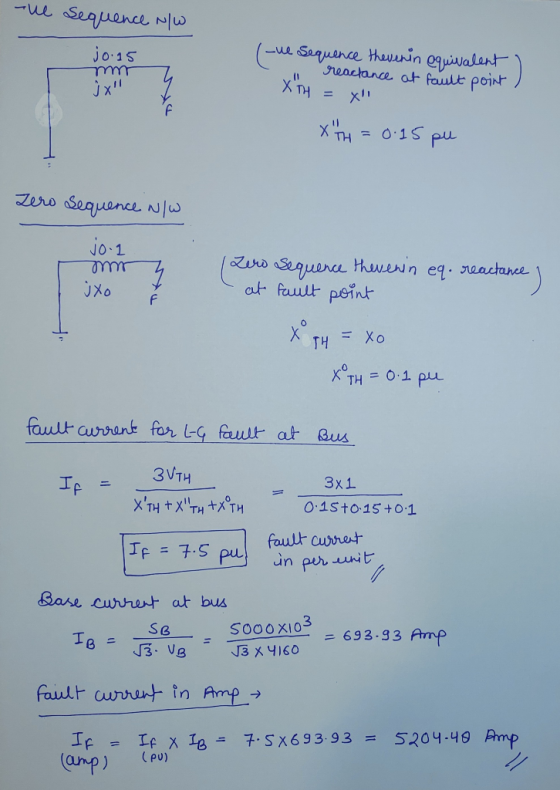 -ve Sequence N/W
j0.15
jX''
F
(-ve Sequence thevenin equivalent
reactance at fault point)
X''TH = X''
X''TH = 0.15 pu
Zero Sequence N/W
j0.1
jX0
F
(Zero Sequence thevenin eq. reactance)
at fault point
X⁰TH = X0
X⁰TH = 0.1 pu
fault current for L-G fault at Bus
IF = 3VTH / X'TH + X''TH + X⁰TH = 3x1 / 0.15+0.15+0.1
IF = 7.5 pu
fault current
in per unit //
Base current at bus
IB = SB / √3. VB = 5000X10³ / √3 X 4160 = 693.93 Amp
fault current in Amp →
IF (amp) = IF (PU) X IB = 7.5X693.93 = 5204.48 Amp //